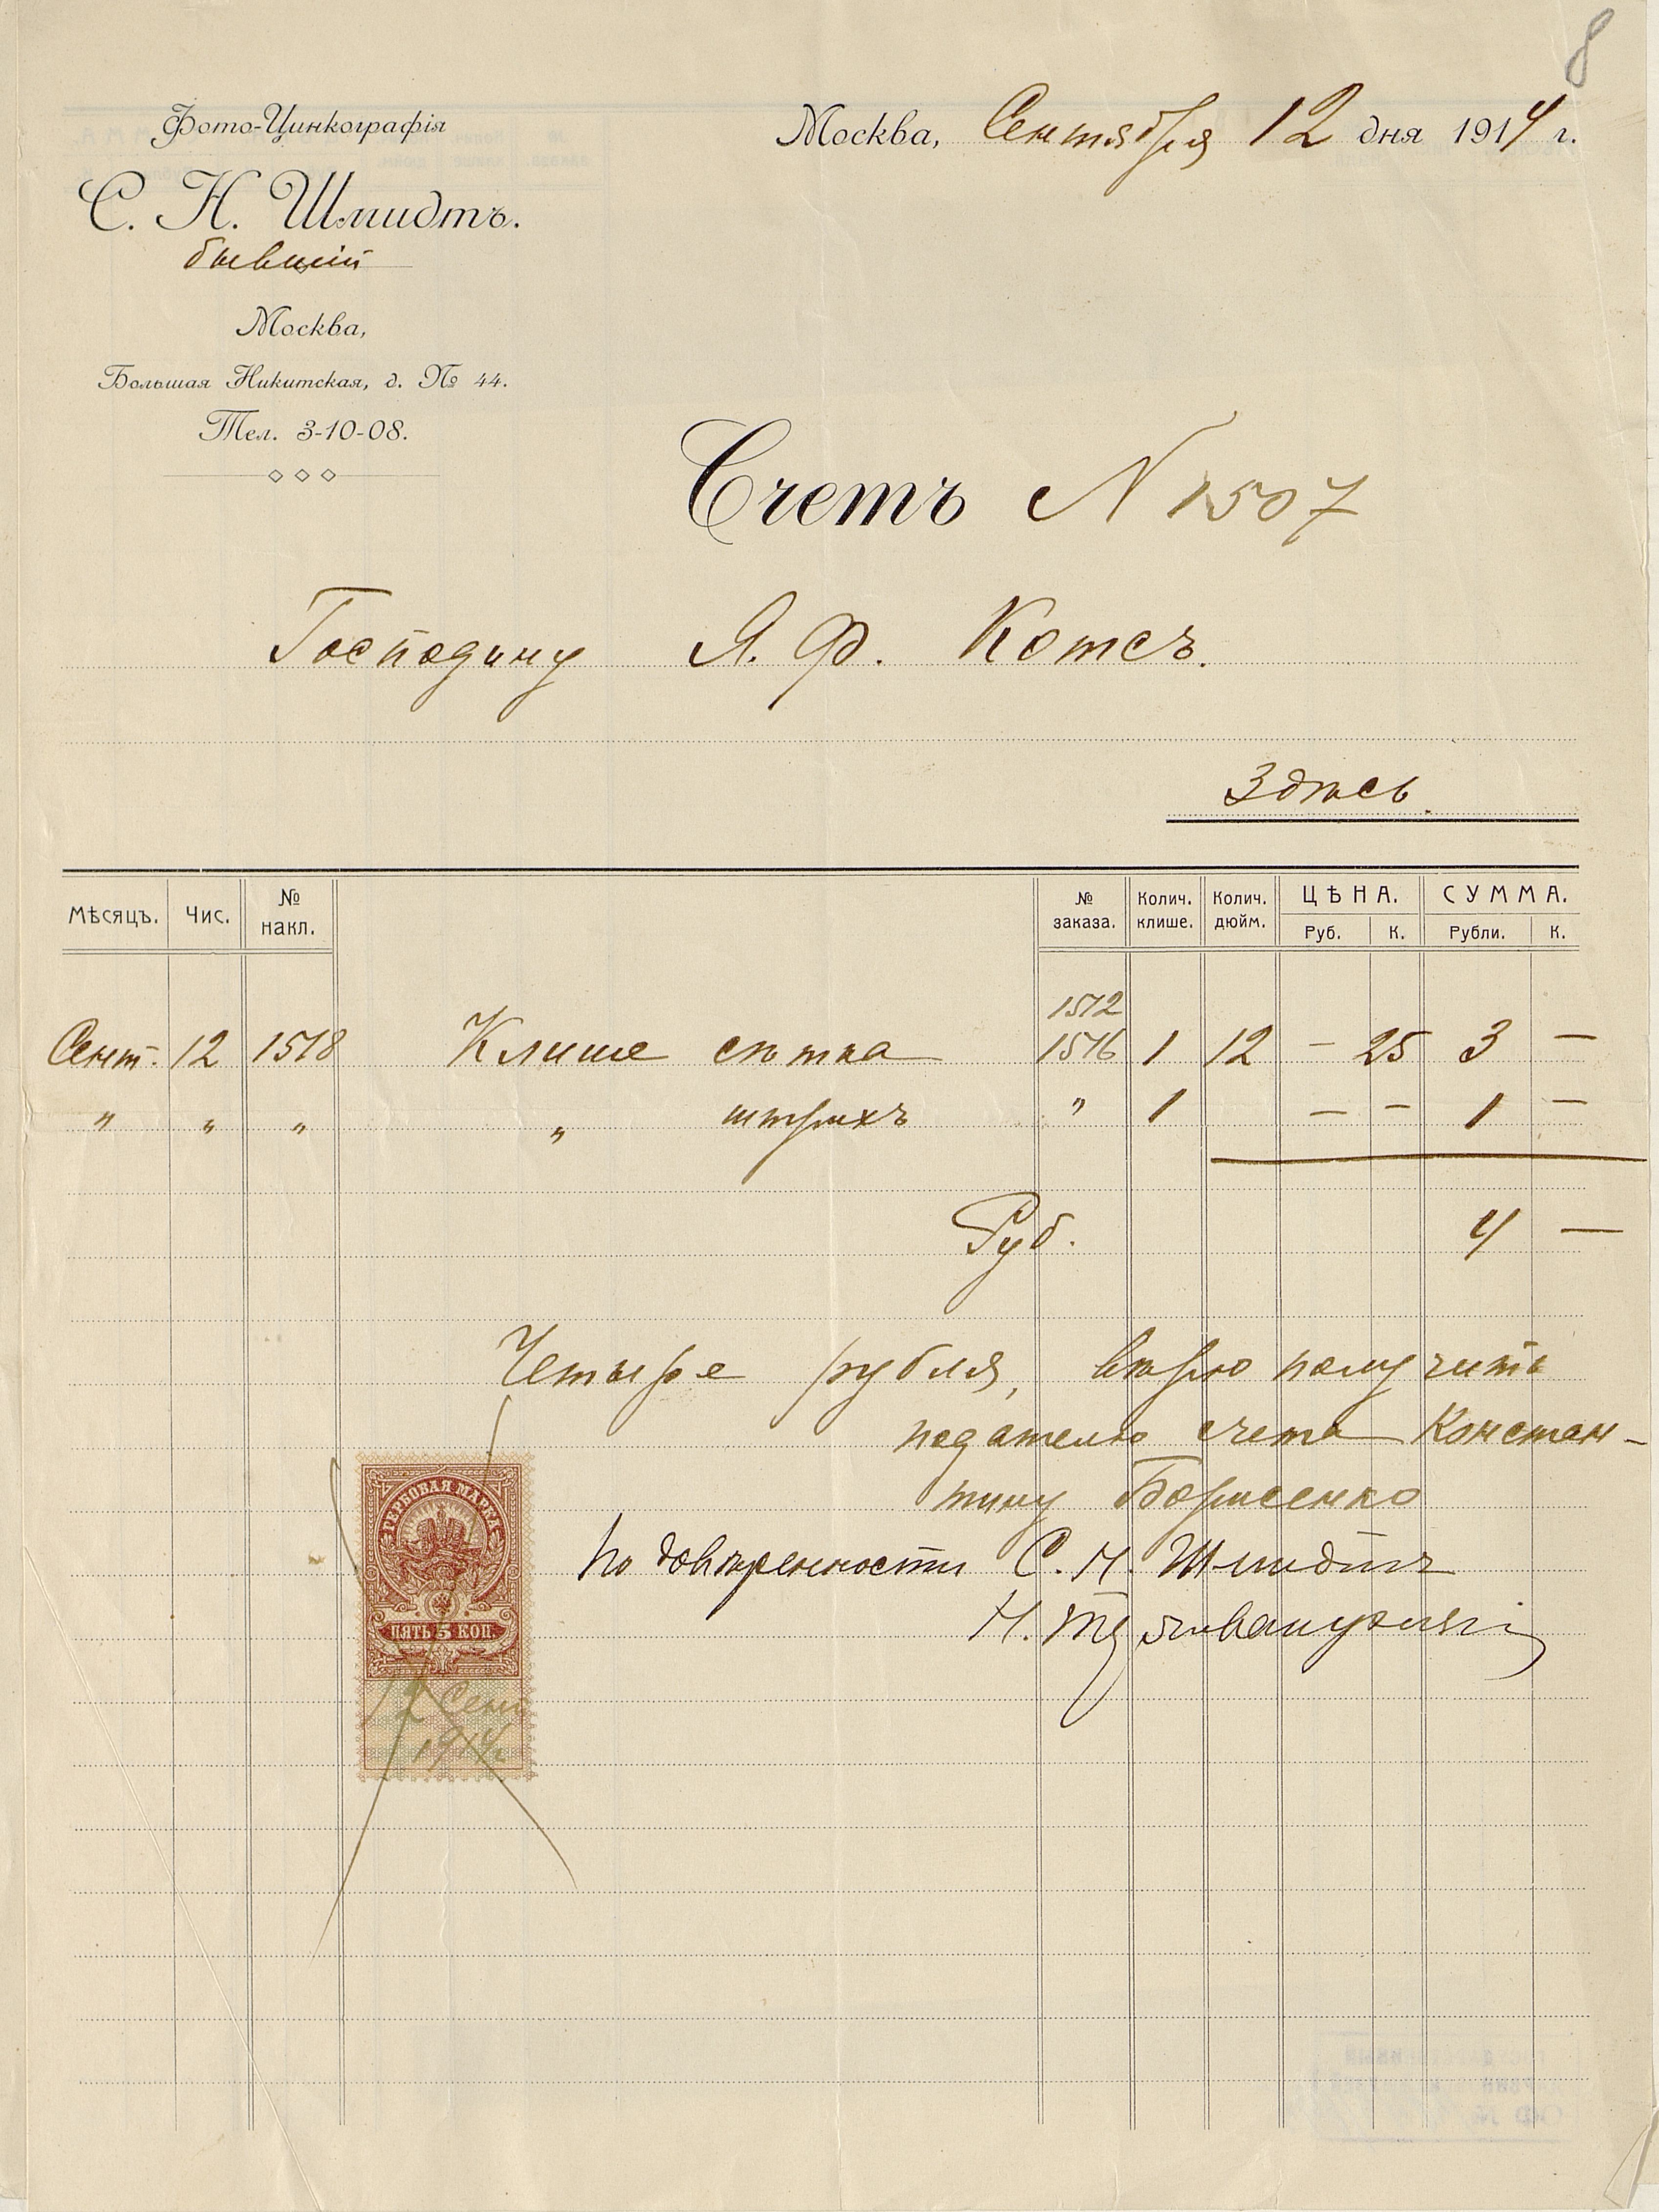 8
Фото-Цинкографія
Москва, Сентября 12 дня 1914 г.
С. Н. Шмидтъ.
бывшій
Москва,
Большая Никитская, д. № 44.
Тел. 3-10-08.
Счетъ N 1507
Господину Я. Ф. Котсъ.
Здѣсь.
Мѣсяцъ. Чис. № накл. № заказа. Колич. клише. Колич. дюйм. ЦѢНА. Руб. К. СУММА. Рубли. К.
1512
Сент. 12 1518 Клише сѣтка 1516 1 12 — 25 3 —
" " " " штрихъ " 1 — — 1 —
Руб. 4 —
Четыре рубля, вѣрю получить
подателю счета Констан-
тину Борисенко
По довѣренности С. Н. Шмидтъ
Н.
ГЕРБОВАЯ МАРКА
ПЯТЬ 5 КОП.
12 Сент
1914 г